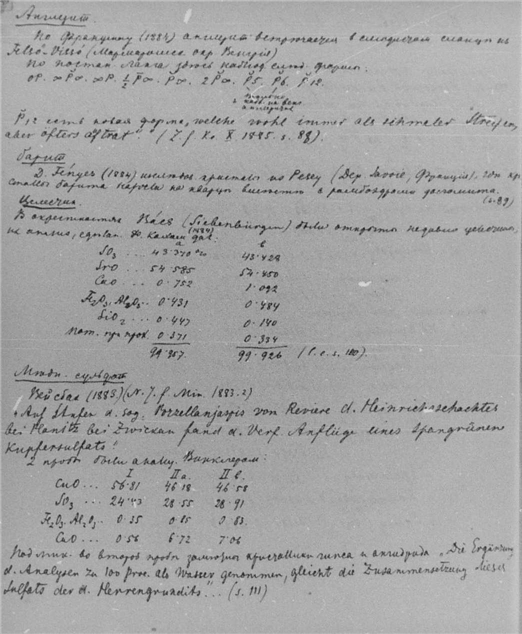 Англезит.
По Францену (1884) англезит встречается в слюдяном сланце из
Felső-Visó (Мармарошск. окр. Венгрия)
По постан. здесь наблюд. след. формы.
oP. ∞P̆∞. ∞P. ½P̄∞. P̆∞. 2P̆∞. P̆5. P̆6. P̆12.
P̆12 есть новая форма, welche wohl immer als schmaler "Streifen,
aber öfters auftrat" (Z. f. Kr. X 1885. s. 89).
Барит
D. (1884) кристалл по Pesey (Dep. Savoie, Франция), где кри-
сталлы барита на кварце вместе с ромбоэдрами доломита.
(s. 89)
Целестин.
В окрестностях Kács (Siebenbürgen) были открыты недавно целестин,
их анализ, сделан. (1884) дал:
a b
SO₃ ... 43.370 % 43.428
SrO ... 54.585 54.450
CaO ... 0.752 1.092
Fe₂O₃, Al₂O₃ .. 0.431 0.484
SiO₂ .. 0.447 0.140
Пот. при прок. 0.371 0.334
99.957. 99.926 (l. c. s. 110).
Медн. сульфат
Вейсбах (1883) (N. J. f. Min. 1883. 2)
"Auf Stufen d. sog. Porzellanjaspis von Reviere d. Heinrichschachtes
bei Planitz bei Zwickau fand d. Verf. Anflüge eines spangrünen
Kupfersulfats".
2 пробы были анализ. Винклером:
I IIa. II b.
CuO ... 56.81 46.18 46.58
SO₃ ... 24.43 28.55 28.91
Fe₂O₃. Al₂O₃ .. 0.35 0.85 0.63
CaO ... 0.56 6.72 7.06
Под мик. во второй пробе замечены кристаллики гипса и ангидрида "Die Ergänzung
d. Analysen zu 100 Proc. als Wasser genommen, gleicht die Zusammensetzung dieser
Sulfats der d. Herrengrundits"... (s. 111)